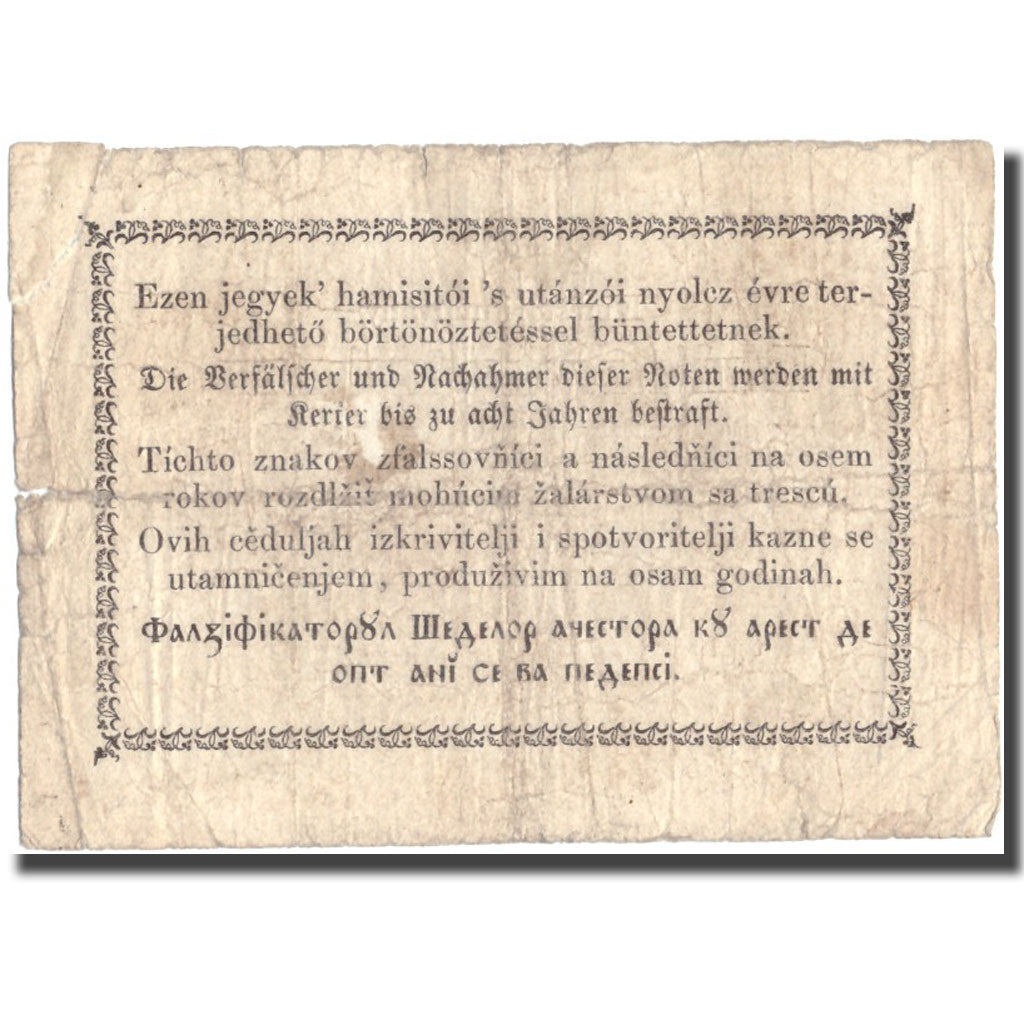 Ezen jegyek’ hamisitói ’s utánzói nyolcz évre ter-
jedhető börtönöztetéssel büntettetnek.
Die Verfälscher und Nachahmer dieser Noten werden mit
Kerker bis zu acht Jahren bestraft.
Tíchto znakov zfalssovňíci a následňíci na osem
rokov rozdlžiš mohúcim žalárstvom sa trescú.
Ovih cěduljah izkrivitelji i spotvoritelji kazne se
utamničenjem, produživim na osam godinah.
Фалꙁіфікаторꙋл Шеделор ачестора кꙋ арест де
опт анĭ се ва педепсі.